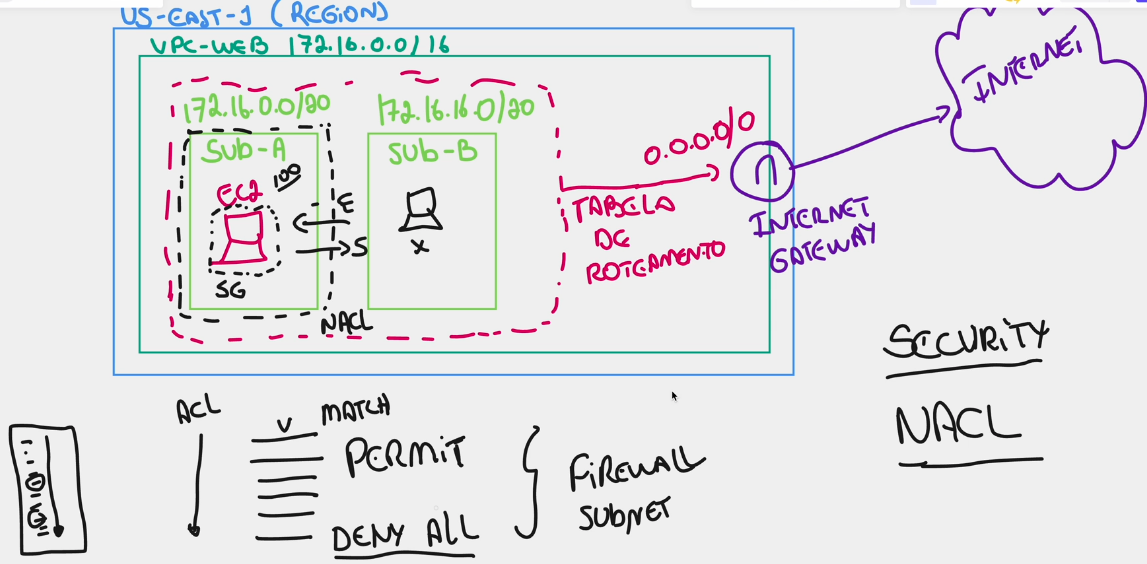 US-EAST-1 (REGION)
VPC-WEB 172.16.0.0/16
172.16.0.0/20
172.16.16.0/20
SUB-A
SUB-B
EC2
100
E
S
SG
X
NACL
0.0.0.0/0
TABELA
DE
ROTEAMENTO
INTERNET
GATEWAY
INTERNET
SECURITY
NACL
ACL
V MATCH
PERMIT
DENY ALL
FIREWALL
SUBNET